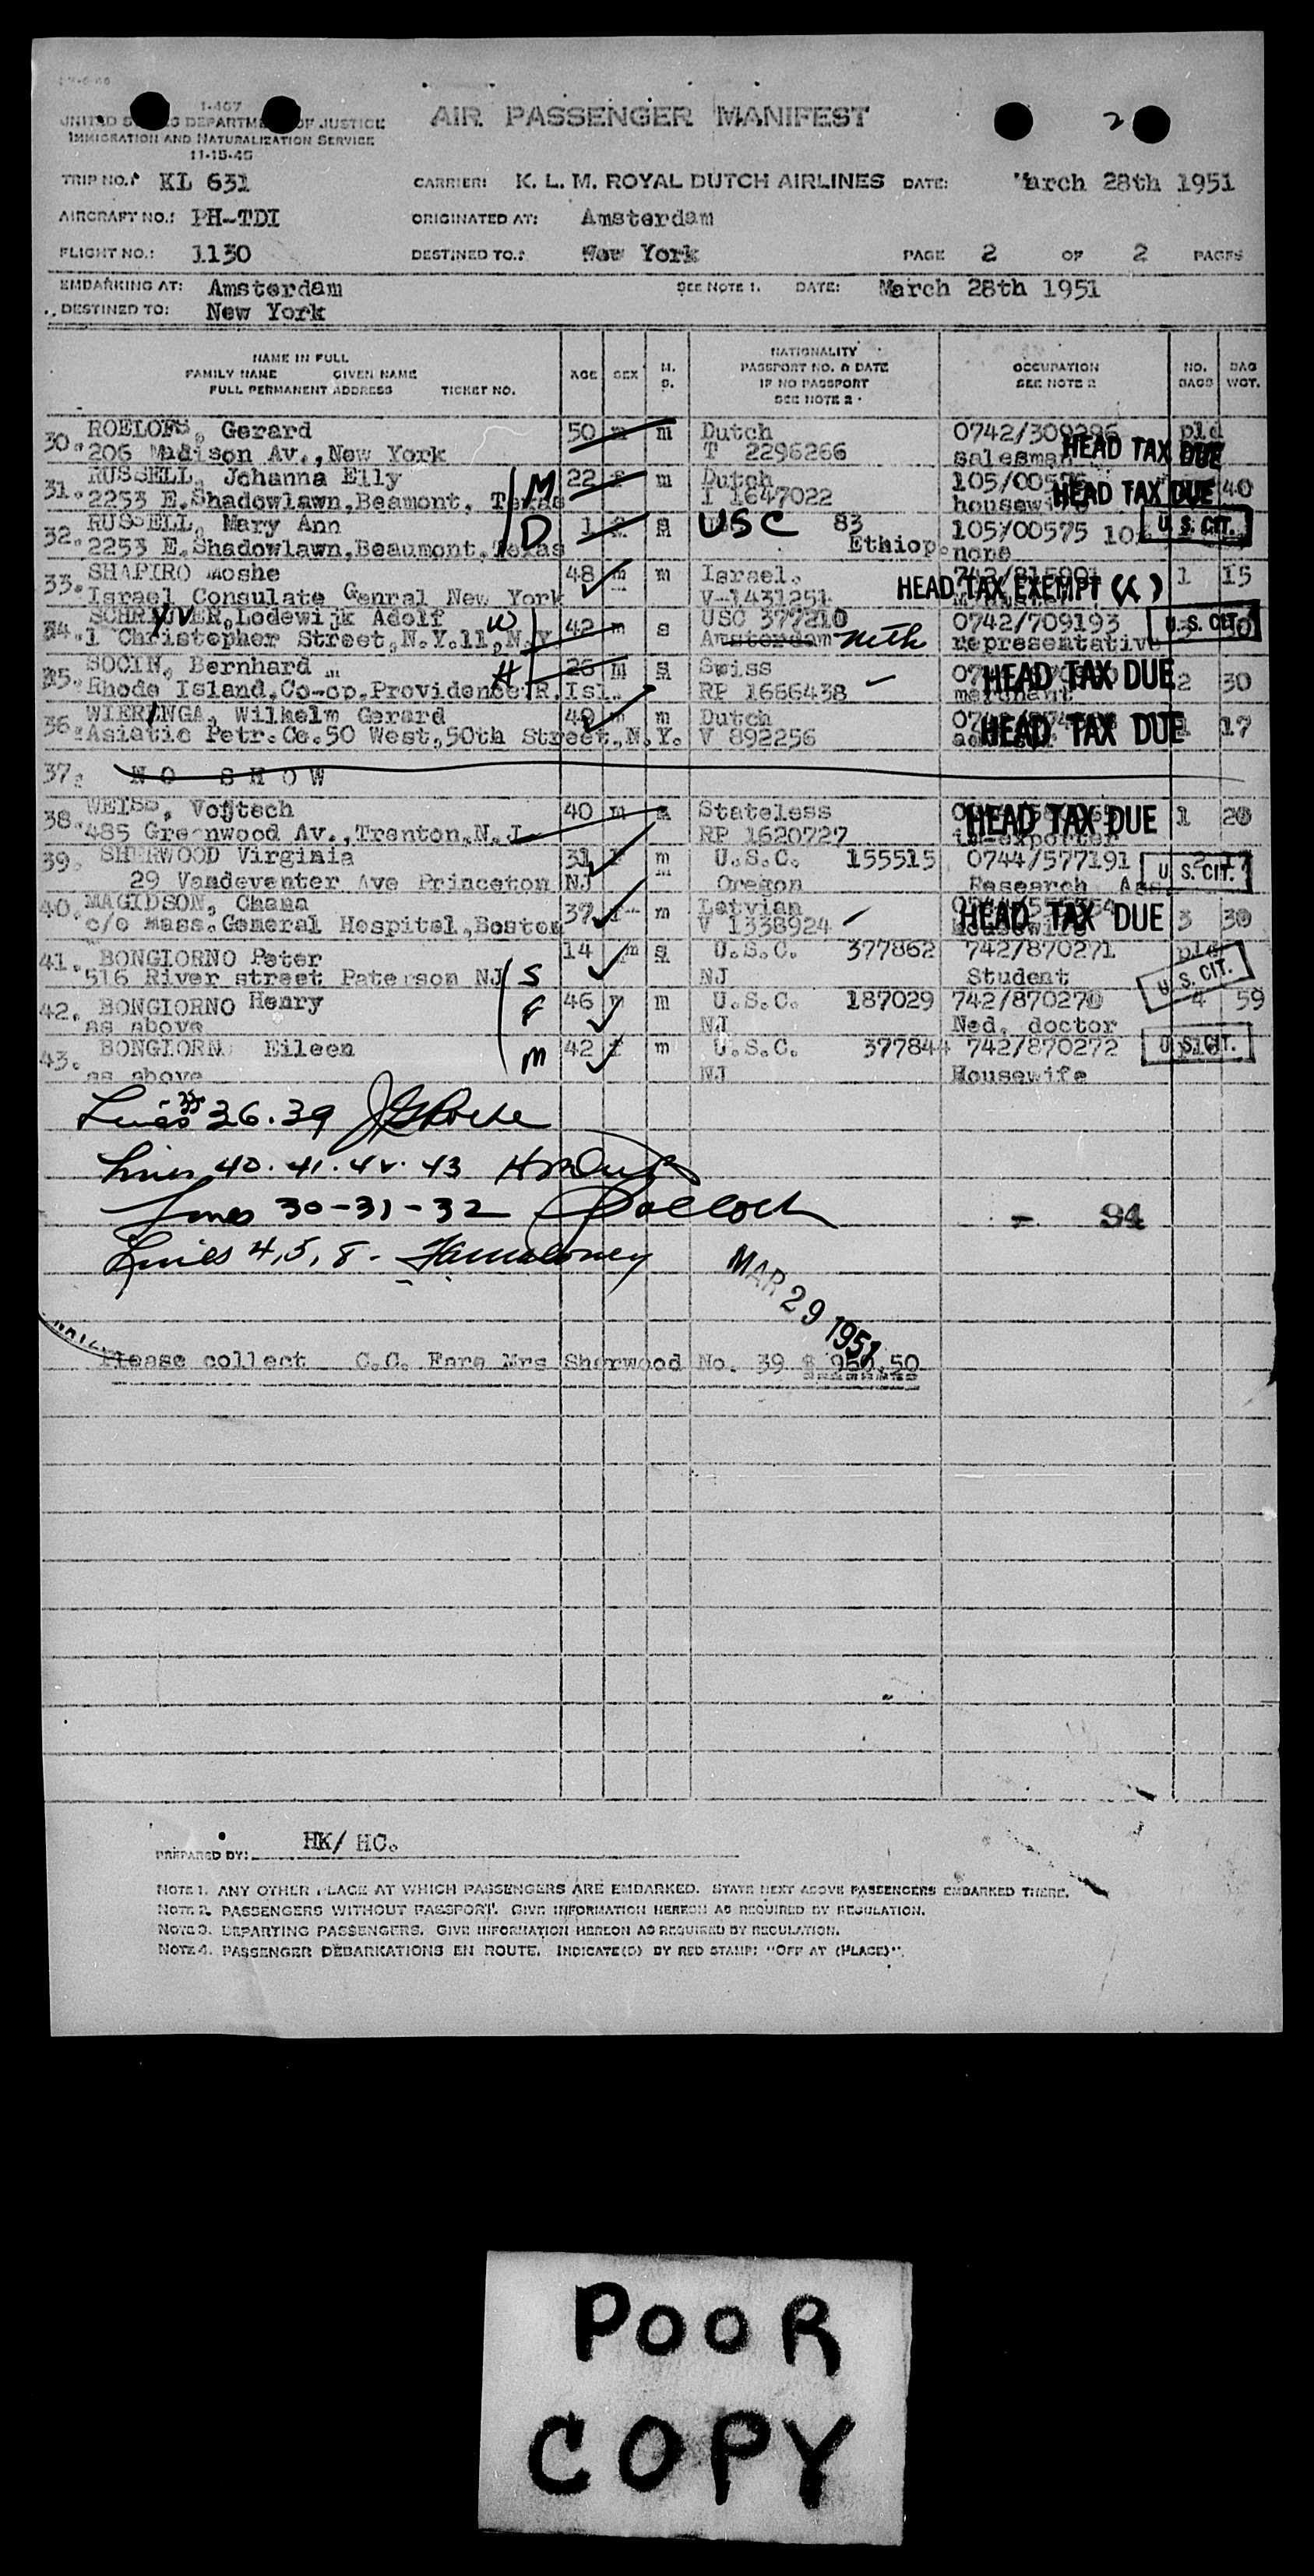 I-467
UNITED DEPARTMENT OF JUSTICE
IMMIGRATION AND NATURALIZATION SERVICE
11-15-45
AIR PASSENGER MANIFEST
2
TRIP NO.: KL 631 CARRIER: K. L. M. ROYAL DUTCH AIRLINES DATE: March 28th 1951
AIRCRAFT NO.: PH-TDI ORIGINATED AT: Amsterdam
FLIGHT NO.: 1130 DESTINED TO: New York PAGE 2 OF 2 PAGES
EMBARKING AT: Amsterdam SEE NOTE 1. DATE: March 28th 1951
DESTINED TO: New York
NAME IN FULL
FAMILY NAME GIVEN NAME
FULL PERMANENT ADDRESS TICKET NO.
AGE SEX M. S.
NATIONALITY
PASSPORT NO. & DATE
IF NO PASSPORT
SEE NOTE 2
OCCUPATION
SEE NOTE 2
NO. BAGS
BAG WGT.
30. ROELOFS, Gerard 50 m m Dutch 0742/309296 pld
206 Madison Av.,New York T 2296266 salesman HEAD TAX DUE
31. RUSSELL, Johanna Elly M 22 f m Dutch
2253 E.Shadowlawn,Beamont, Texas I 1647022 housewife HEAD TAX DUE 40
32. RUSSELL, Mary Ann D 1 f s USC 83 105/00575 U. S. CIT.
2253 E.Shadowlawn,Beaumont,Texas Ethiop. none
33. SHAPIRO Moshe 48 m m Israel. 1 15
Israel Consulate Genral New York V-1431251 HEAD TAX EXEMPT ( )
34. SCHRYVER,Lodewijk Adolf W 42 m s USC 377210 0742/709193 U. S. CIT.
1 Christopher Street,N.Y.11,N.Y. Amsterdam Neth representative
35. SOCIN, Bernhard H 26 m s Swiss HEAD TAX DUE 2 30
Rhode Island,Co-op.Providence R.Isl. RP 1686438
36. WIERINGA, Wilhelm Gerard 49 m m Dutch HEAD TAX DUE 17
Asiatic Petr.Co.50 West,50th Street.,N.Y. V 892256
37. NO SHOW
38. WEISS, Vojtech 40 m s Stateless HEAD TAX DUE 1 20
485 Greenwood Av.,Trenton,N.J. RP 1620727 im-exporter
39. SHERWOOD Virginia 31 f m U.S.C. 155515 0744/577191 2 17 U. S. CIT.
29 Vandeventer Ave Princeton NJ Oregon Research Ass.
40. MAGIDSON, Chana 37 f m Latvian HEAD TAX DUE 3 30
c/o Mass.General Hospital,Boston V 1338924 housewife
41. BONGIORNO Peter S 14 m s U.S.C. 377862 742/870271 pld
516 River street Paterson NJ NJ Student U. S. CIT.
42. BONGIORNO Henry F 46 m m U.S.C. 187029 742/870270 4 59
as above NJ Ned. doctor
43. BONGIORN Eileen M 42 f m U.S.C. 377844 742/870272 U. S. CIT.
as above NJ Housewife
Lines 35 36.39
Lines 40.41.42.43
Lines 30-31-32
- 94
Lines 4,5,8-
MAR 29 1951
Please collect C.C. Fare Mrs Sherwood No. 39 $ 950,50
PREPARED BY: HK/ HC.
NOTE 1. ANY OTHER PLACE AT WHICH PASSENGERS ARE EMBARKED. STATE NEXT ABOVE PASSENGERS EMBARKED THERE.
NOTE 2. PASSENGERS WITHOUT PASSPORT. GIVE INFORMATION HEREON AS REQUIRED BY REGULATION.
NOTE 3. DEPARTING PASSENGERS. GIVE INFORMATION HEREON AS REQUIRED BY REGULATION.
NOTE 4. PASSENGER DEBARKATIONS EN ROUTE. INDICATE(D) BY RED STAMP: "OFF AT (PLACE)".
POOR
COPY